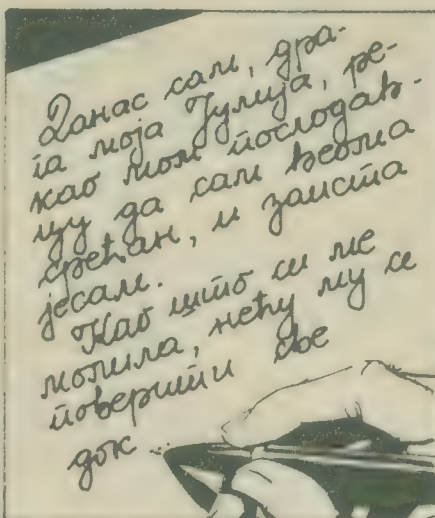 Данас сам, дра-
га моја Јулија, ре-
као мом послодав-
цу да сам веома
срећан, и заиста
јесам.
Као што си ме
молила, нећу му се
поверити све
док